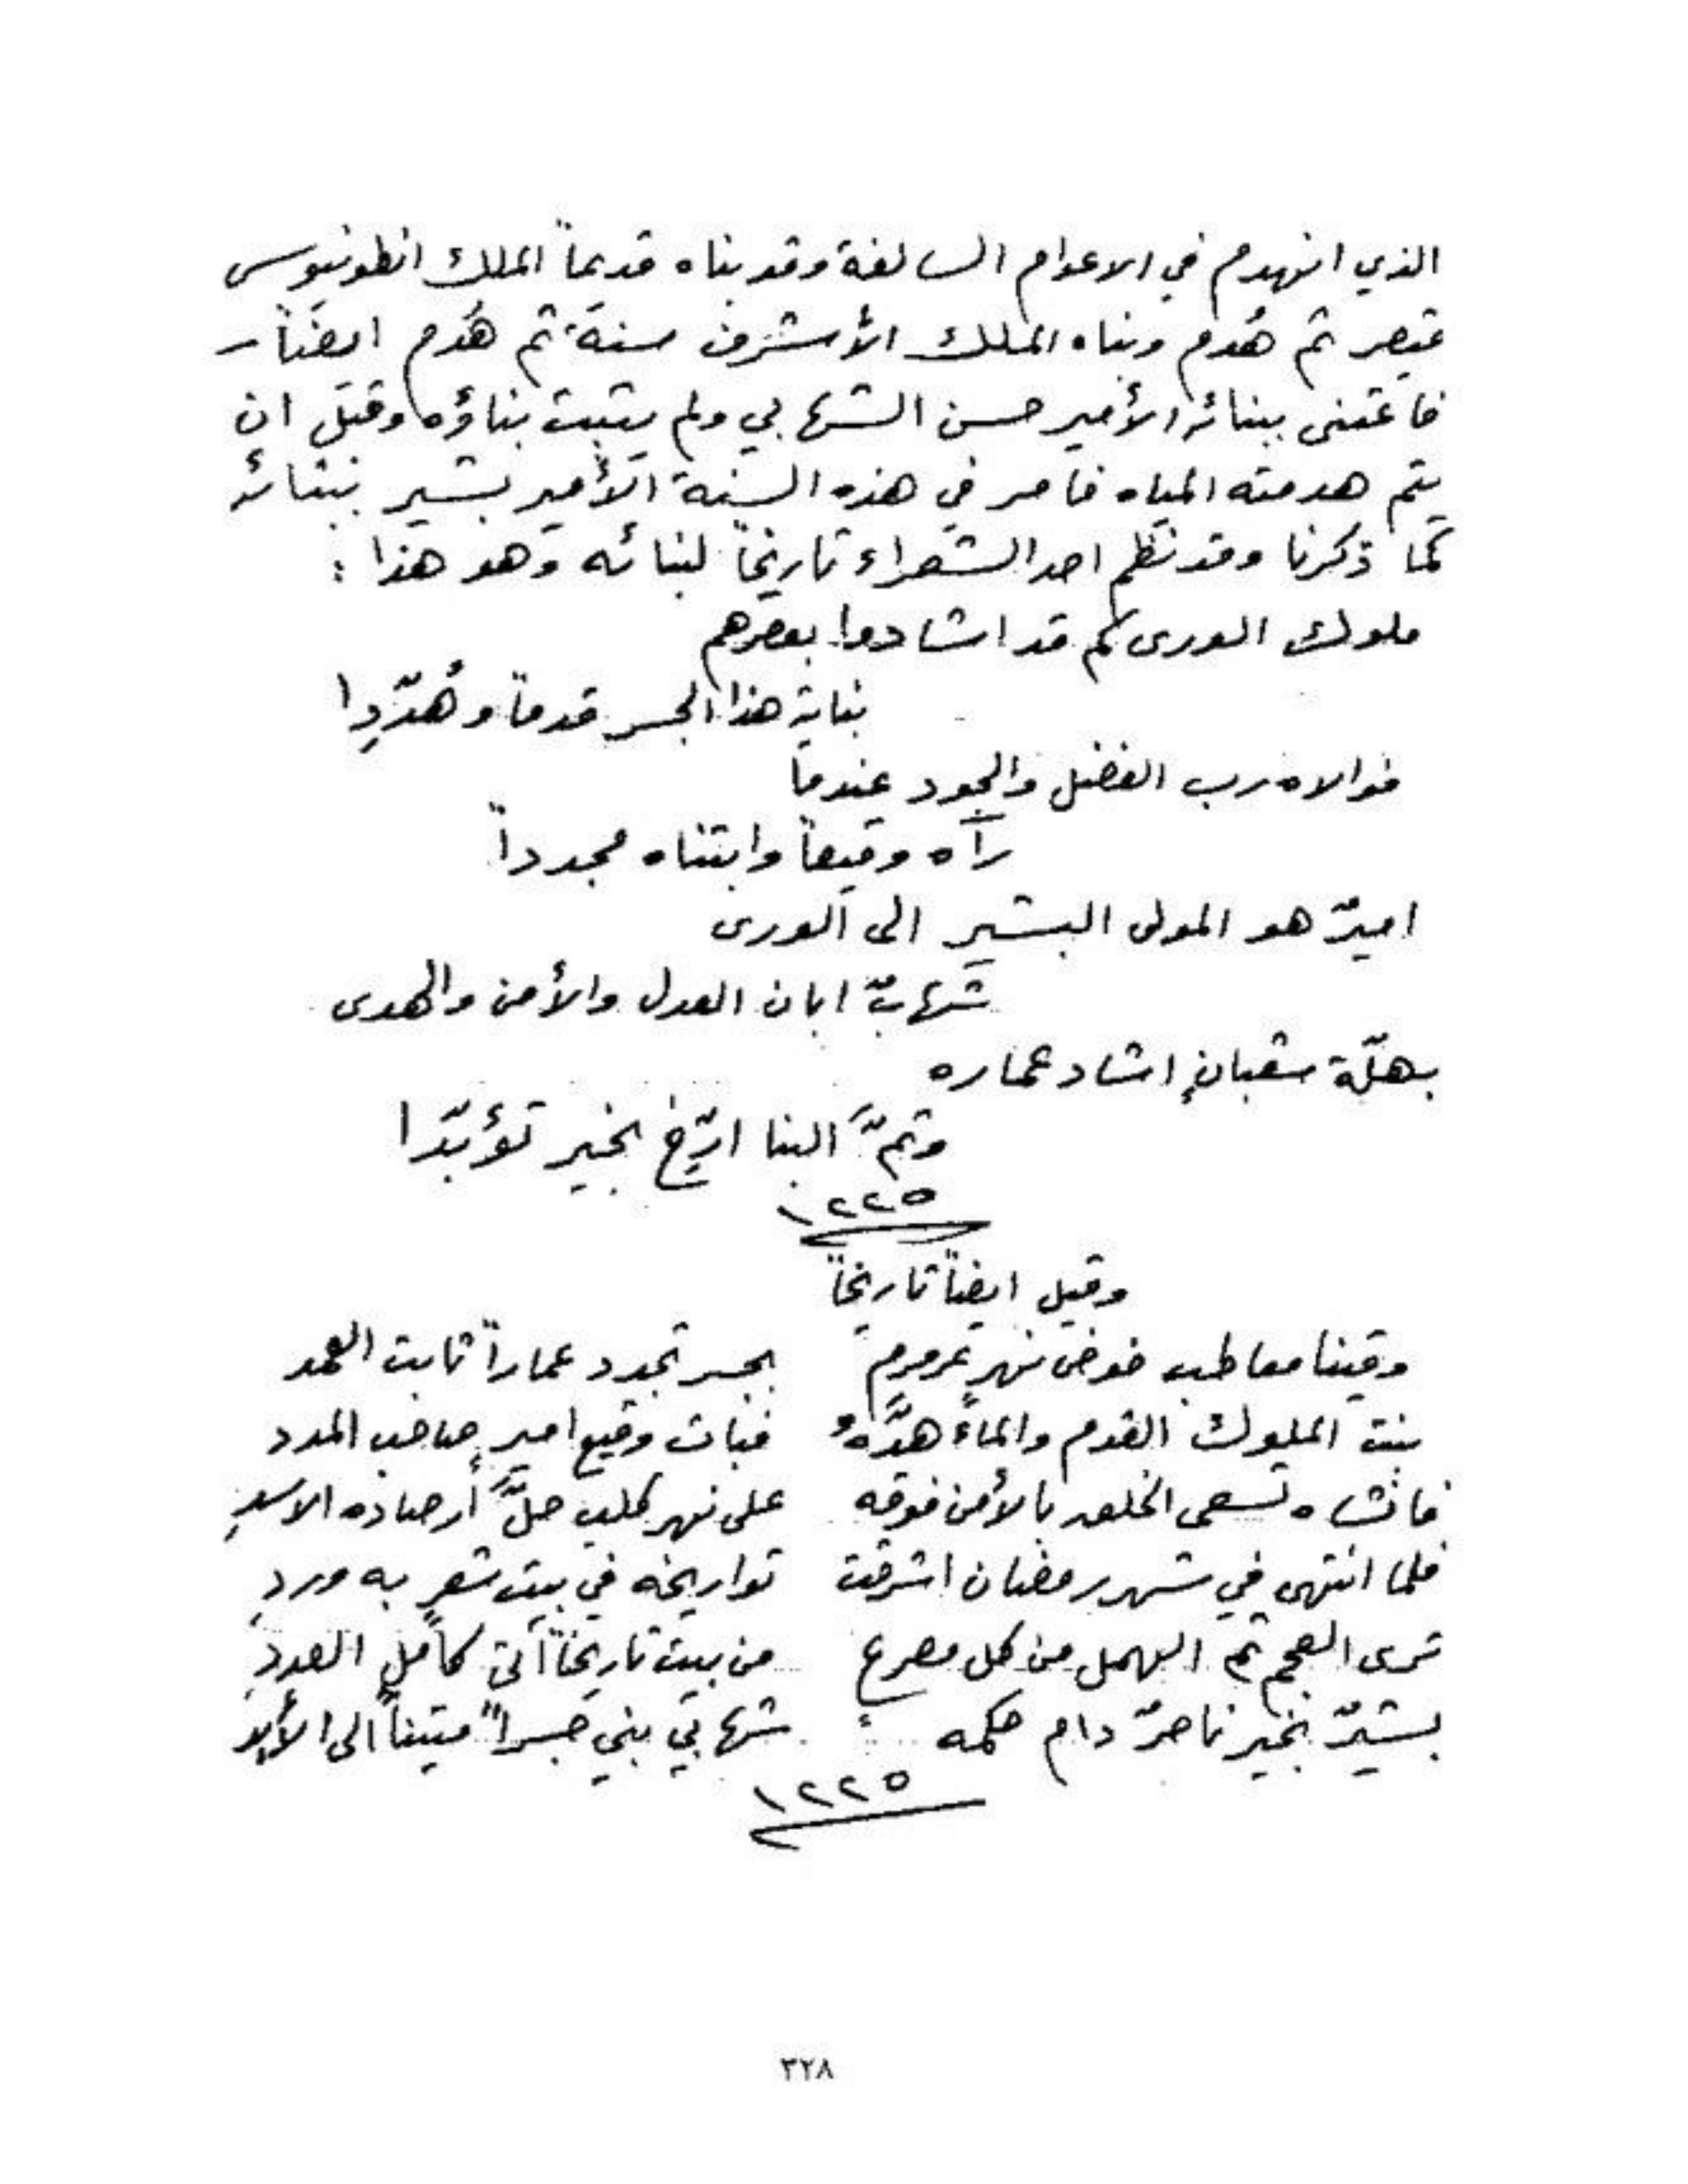 الذي انهدم في الاعوام السالفة وقد بناه قديماً الملك انطونيوس
قيصر ثم هُدم وبناه الملك الأشرف سنة ثم هُدم ايضاً
فاعتنى ببنائه الأمير حسن الشهابي ولم يثبت بناؤه وقبل ان
يتم هدمته المياه فامر في هذه السنة الأمير بشير ببنائه
كما ذكرنا وقد نظم احد الشعراء تاريخاً لبنائه وهو هذا :
ملوك الورى كم قد اشادوا بعصرهم
بناية هذا الجسر قدماً وهُدّدِا
فوالاه رب الفضل والجود عندما
رآه وقيعاً وابتناه مجدداً
اميرٌ هو المولى البشير الى الورى
شهابٌ ابان العدل والأمن والهدى
بهلّة شعبانٍ اشاد عماره
وتمَّ البنا ارّخ بخير تؤبّدا
١٢٢٥
وقيل ايضاً تاريخاً
وقينا معاطب خوض نهرٍ عرمرمٍ بجسر تجدد عماراً ثابت العمد
بنت الملوك القدم والماءُ هدَّهُ فبات وقيع اميرٍ صاحب المدد
فانشاه تسعى الخلق بالأمن فوقه على نهر كلب حلَّ أرصاده الاسدِ
فلما انتهى في شهر رمضان اشرقت تواريخه في بيت شعرٍ به وردِ
ترى المعجم ثم المهمل من كل مصرع من بيت تاريخاً اتى كامل العددِ
بشيرٌ بخير ناصرٌ دام حكمه شهابي بني جسراً متيناً الى الأبدِ
١٢٢٥
٣٢٨